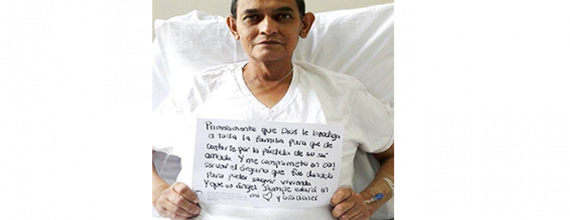 Primeramente que Dios le bendiga
a toda la familia para que de
conforte por la pérdida de su ser
amado. Y me comprometo en con
servar el órgano que fue donado
para poder seguir viviendo
Y que su ángel siempre estará en
mi